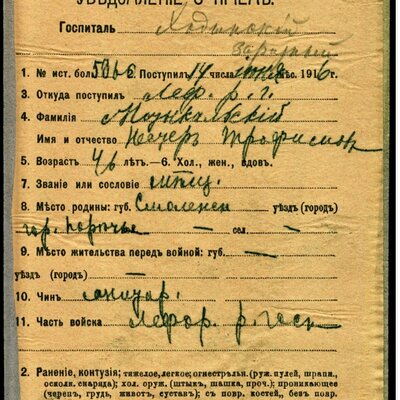 УВѢДОМЛЕНІЕ О ПРІЕМѢ.
Госпиталь Ходынскій
заразный
1. № ист. бол. Поступилъ 14 числа мѣс. 1916 г.
3. Откуда поступилъ Леф. р. г.
4. Фамилія
Имя и отчество
5. Возрастъ 46 лѣтъ.—6. Хол., жен., вдов.
7. Званіе или сословіе мѣщ.
8. Мѣсто родины: губ. Смоленск уѣздъ (городъ)
гор. Порѣчье — сел. —
9. Мѣсто жительства передъ войной: губ. —
уѣздъ (городъ) —
10. Чинъ санитар.
11. Часть войска Лефор. р. госп
2. Раненіе, контузія; тяжелое, легкое; огнестрѣльн. (руж. пулей, шрапн.,
осколк. снаряда); хол. оруж. (штыкъ, шашка, проч.); проникающее
(черепъ, грудь, животъ, суставъ); съ повр. костей, безъ повр.